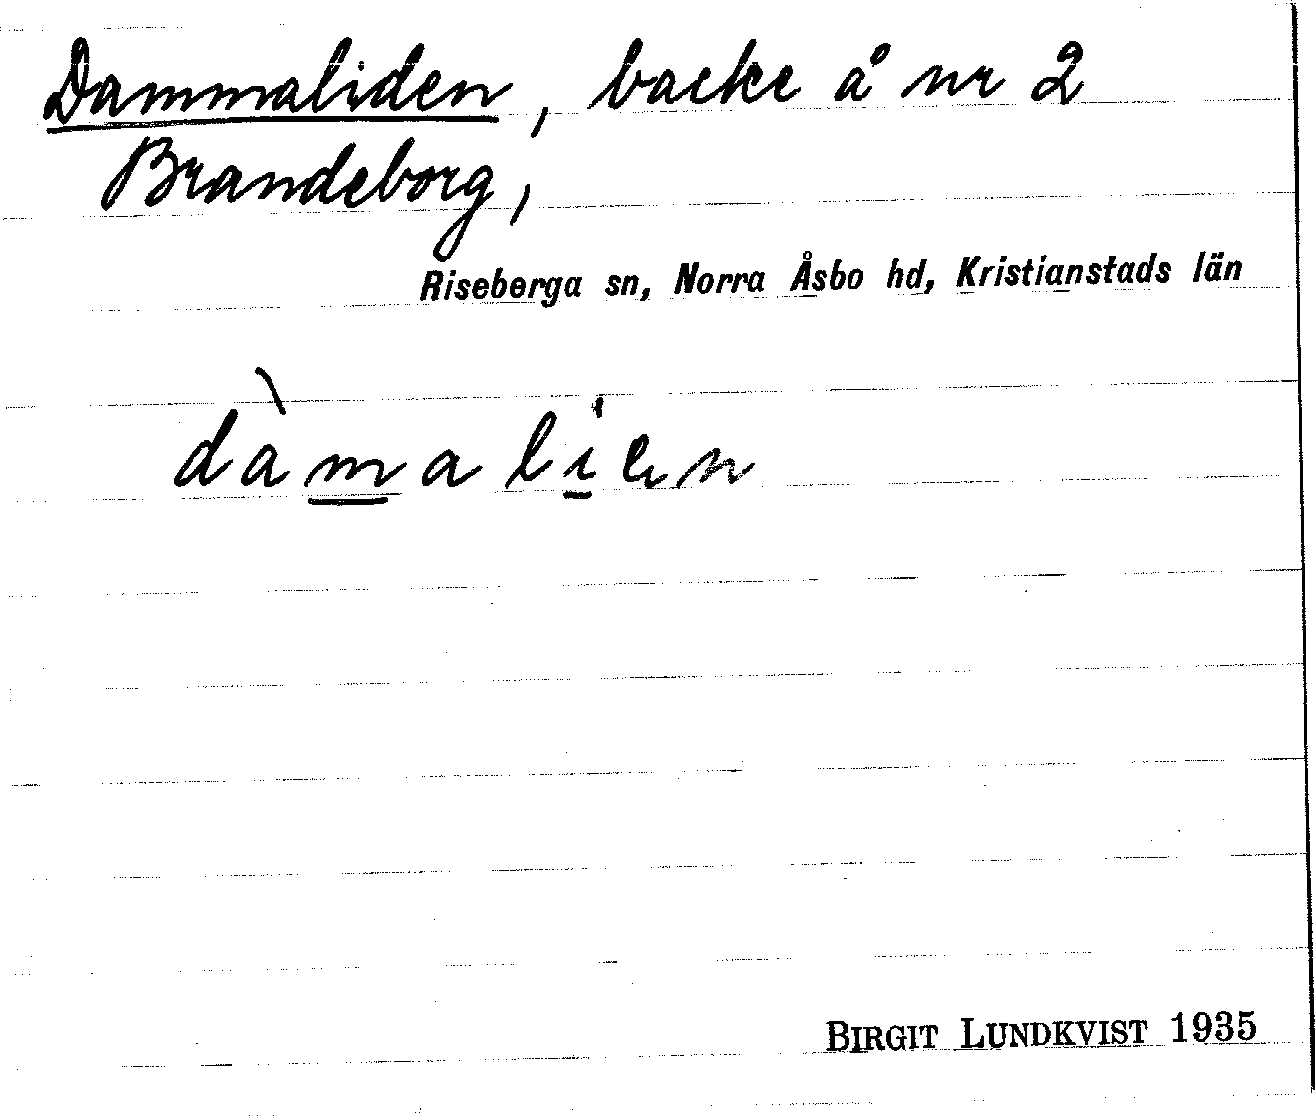 Dammaliden, backe å nr 2
Brandeborg,
Riseberga sn, Norra Åsbo hd, Kristianstads län
dàmalien
BIRGIT LUNDKVIST 1935